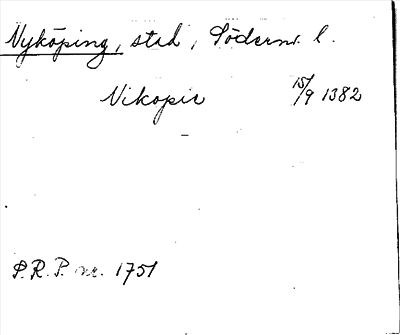 Nyköping, stad, Söderm. l.
Nikopie 15/9 1382
P.R.P. nr. 1751